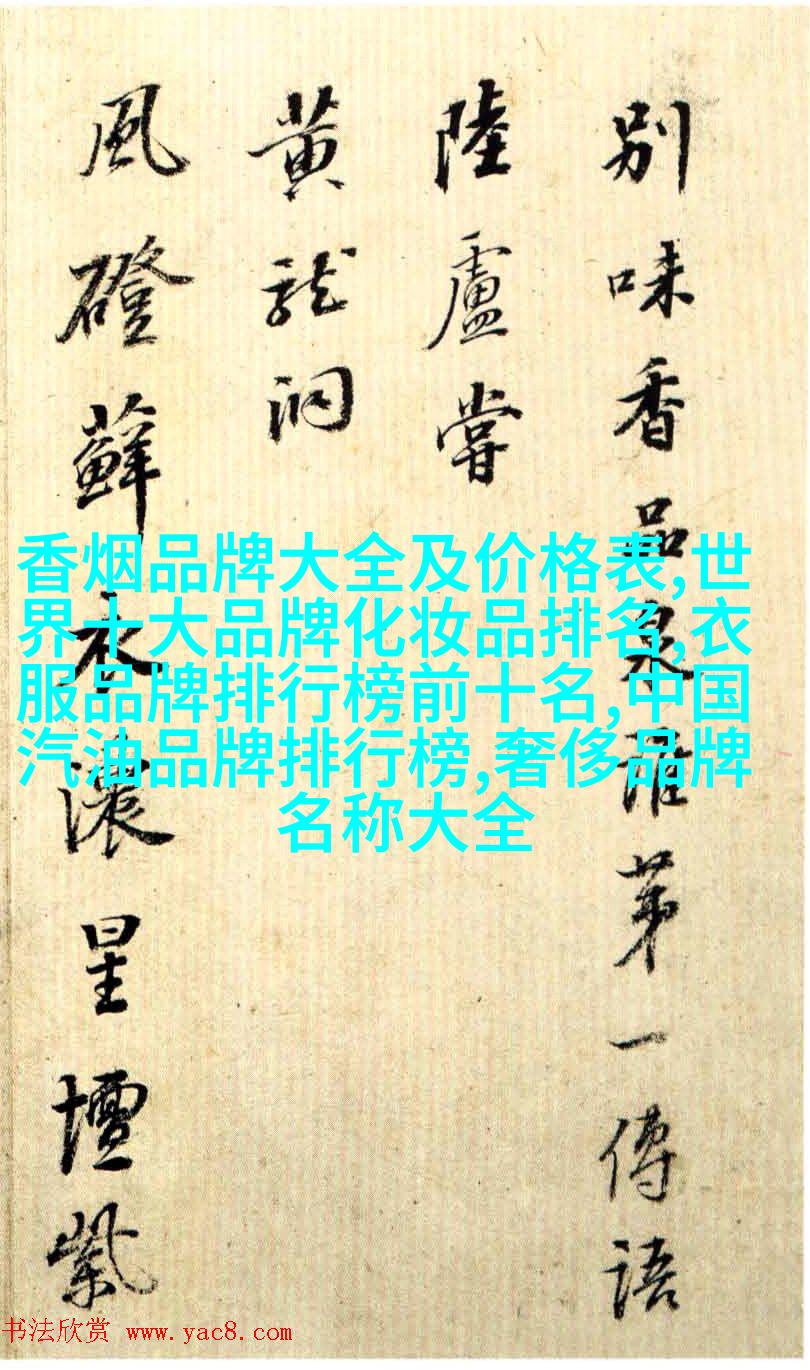 别味香品泉誰苐一傳語
陸盧嘗
黄龍洞
風磴蘚衣濃星壇紫
香烟品牌大全及价格表,世
界十大品牌化妆品排名,衣
服品牌排行榜前十名,中国
汽油品牌排行榜,奢侈品牌
名称大全
书法欣赏 www.yac8.com